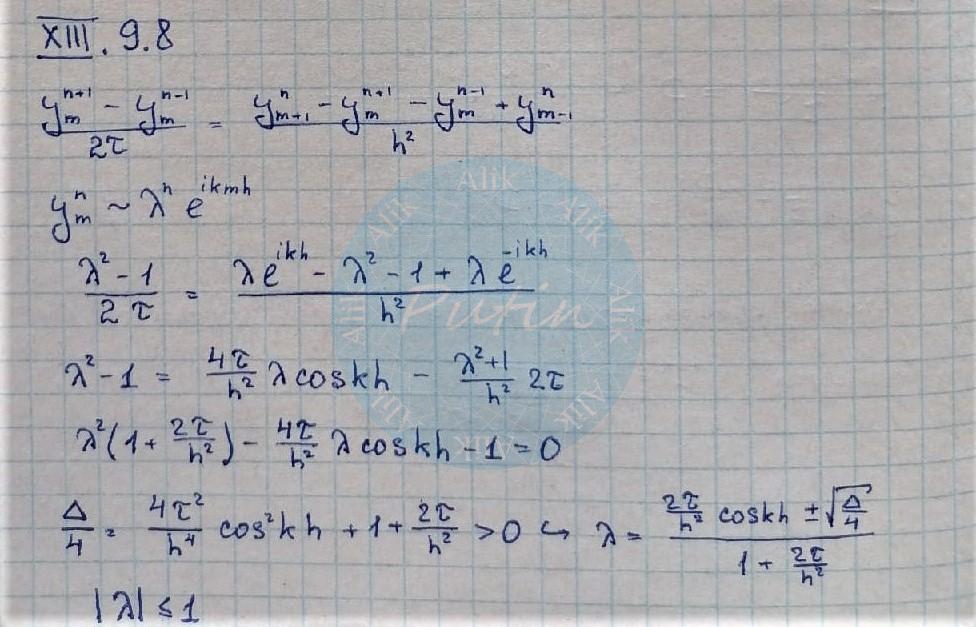 XIII. 9.8
(y_m^{n+1} - y_m^{n-1}) / 2τ = (y_{m+1}^n - y_m^{n+1} - y_m^{n-1} + y_{m-1}^n) / h²
y_m^n ~ λ^n e^{ikmh}
(λ² - 1) / 2τ = (λe^{ikh} - λ² - 1 + λe^{-ikh}) / h²
λ² - 1 = (4τ/h²) λ cos kh - ((λ² + 1)/h²) 2τ
λ²(1 + 2τ/h²) - (4τ/h²) λ cos kh - 1 = 0
Δ/4 = (4τ²/h⁴) cos² kh + 1 + 2τ/h² > 0 ↪ λ = ((2τ/h²) cos kh ± √(Δ/4)) / (1 + 2τ/h²)
|λ| ≤ 1
Alik
Alik
Alik
Alik
Alik
Alik
Alik
Alik
Putin